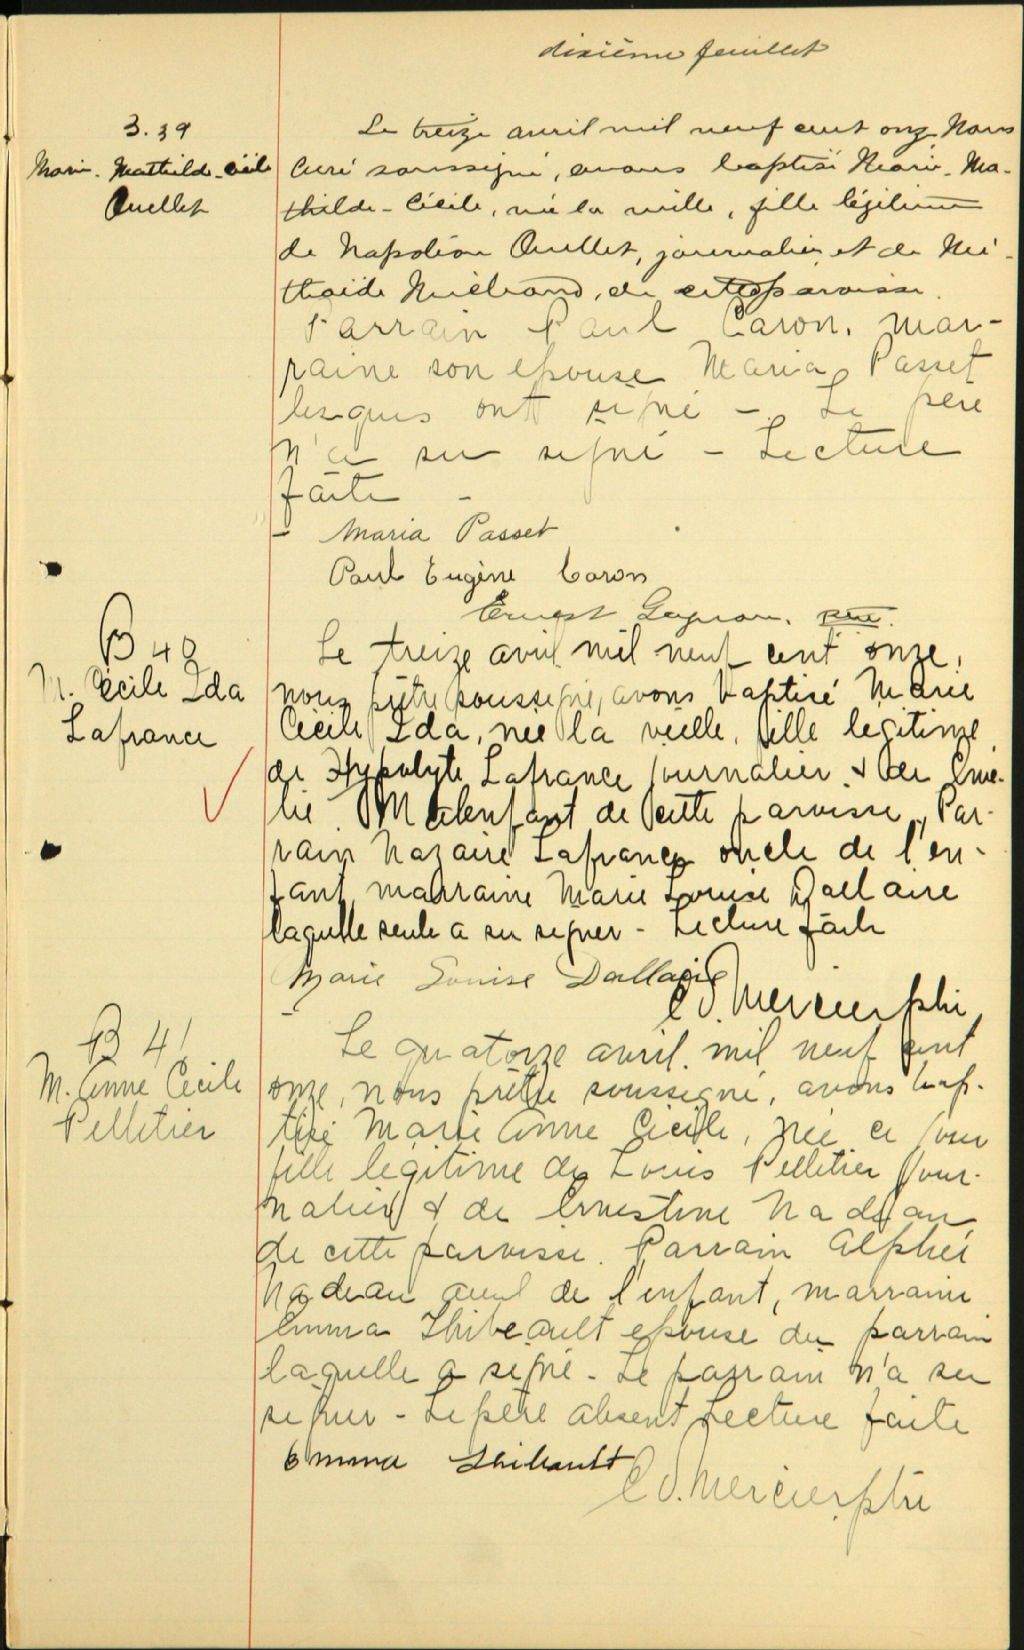 dixième feuillet
B. 39
Marie-Mathilde-Cécile
Ouellet
Le treize avril mil neuf cent onze Nous
Curé soussigné, avons baptisé Marie-Ma-
thilde-Cécile, née la veille, fille légitime
de Napoléon Ouellet, journalier et de
Michaud, de cette paroisse.
Parrain Paul Caron, mar-
raine son epouse Maria Passet
lesquels ont signé - Le père
n'a su signé - Lecture
faite -
- Maria Passet
Paul Eugène Caron
Ernest Gagnon, ptre.
B 40
M. Cécile Ida
Lafrance
Le treize avril mil neuf cent onze,
nous prêtre soussigné, avons baptisé Marie
Cécile Ida, née la veille, fille legitime
de Hypolyte Lafrance journalier & de Emé-
lie Malenfant de cette paroisse, Par-
rain Nazaire Lafrance oncle de l'en-
fant, marraine Marie Louise Dallaire
laquelle seule a su signer - Lecture faite
Marie Louise Dallaire
C O. Mercier ptre
B 41
M. Anne Cecile
Pelletier
Le quatorze avril mil neuf cent
onze, nous prêtre soussigné, avons bap-
tisé Marie Anne Cécile, née ce jour
fille légitime de Louis Pelletier jour-
nalier & de Ernestine Nadeau
de cette paroisse. Parrain Alphée
Nadeau aieul de l'enfant, marraine
Emma Thibeault epouse du parrain
laquelle a signé - Le parrain n'a su
signer - Le père absent Lecture faite
Emma Thibault
C O. Mercier ptre